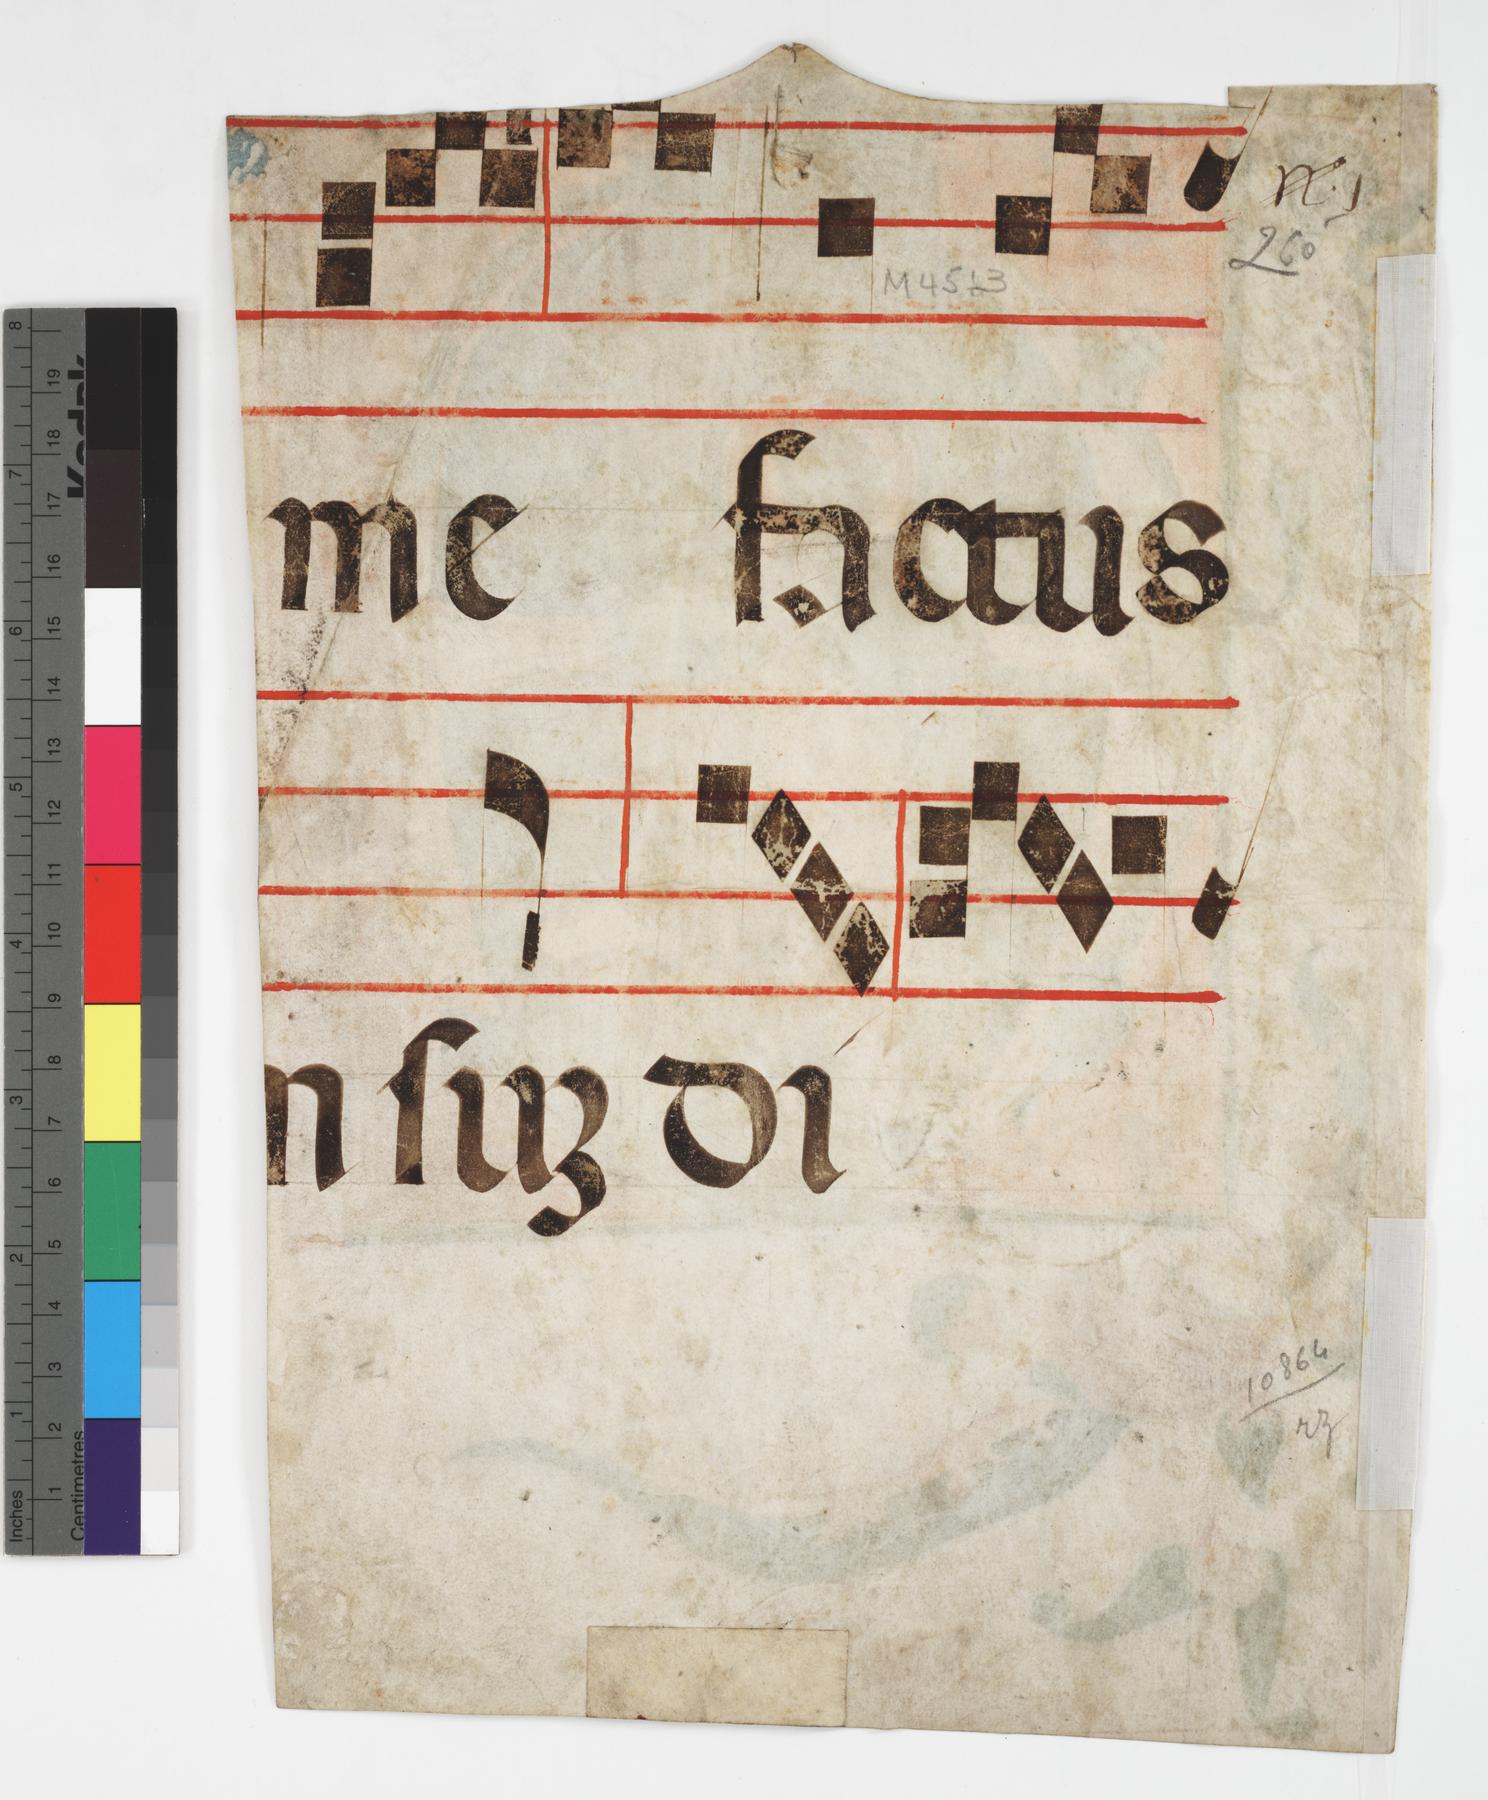 M 4513
260
me factus
n suꝫ di
10864
rz
Kodak
Inches 1 2 3 4 5 6 7 8
Centimetres 1 2 3 4 5 6 7 8 9 10 11 12 13 14 15 16 17 18 19